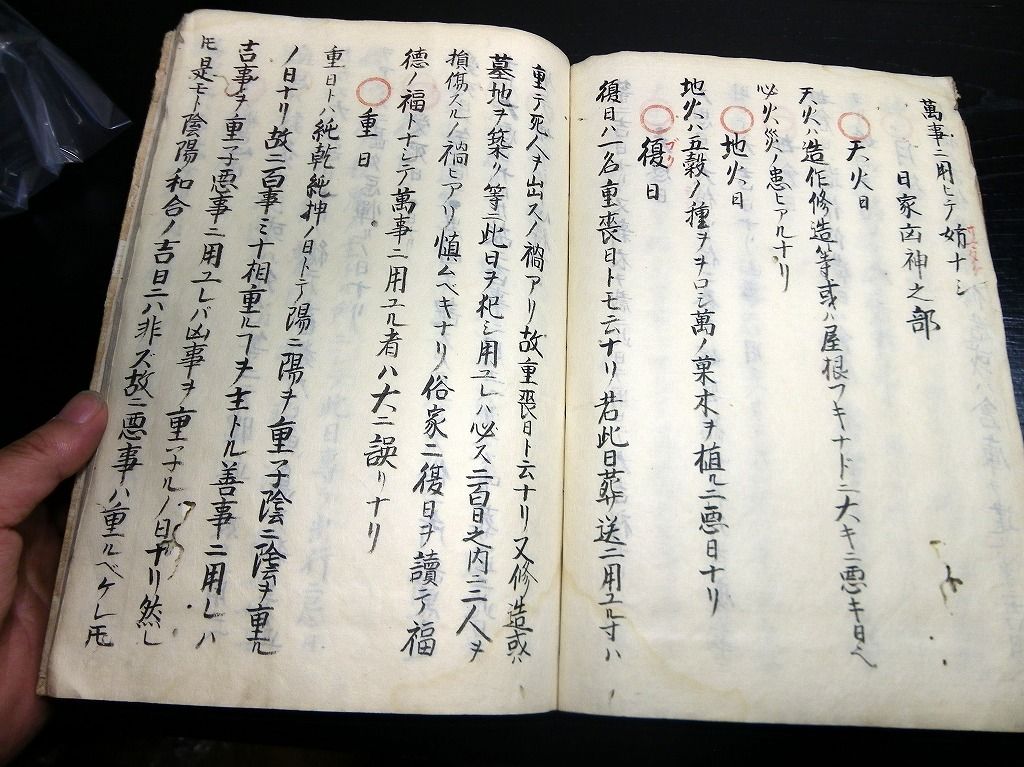 萬事ニ用ヒテ妨ナシ
日家凶神之部
天火日
天火ハ造作修造等或ハ屋根フキナドニ大キニ悪キ日ヘ
必火災ノ患ヒアルナリ
地火日
地火ハ五穀ノ種ヲヲロシ萬ノ菓木ヲ植ルニ悪日ナリ
復日
ブク
復日ハ一名重喪日トモ云ナリ若此日葬送ニ用ユル寸ハ
重テ死人ヲ出スノ禍アリ故重喪日ト云ナリ又修造或ハ
墓地ヲ築ク等ニ此日ヲ犯シ用ユレハ必ス二百日之内ニ三人ヲ
損傷スルノ禍ヒアリ慎ムベキナリ俗家ニ復日ヲ讀テ福
徳ノ福トナシテ萬事ニ用ユル者ハ大ニ誤リナリ
重日
重日トハ純乾純坤ノ日トテ陽ニ陽ヲ重子陰ニ陰ヲ重ル
ノ日ナリ故ニ百事ミナ相重ルヿヲ主トル善事ニ用レハ
吉事ヲ重子悪事ニ用ユレバ凶事ヲ重子ルノ日ナリ然レ
𪜈是モト陰陽和合ノ吉日ニハ非ズ故ニ悪事ハ重ルベケレ𪜈